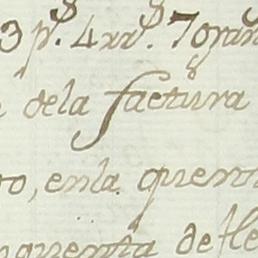 3 p.s 4 rr.s 7 gran
dela factura
to, enla quent
nquenta de fle